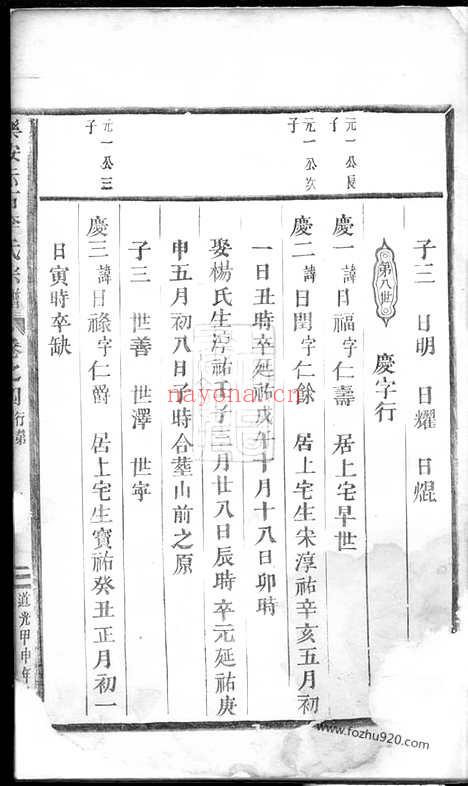 子三 日明 日耀 日焜
第八世
慶字行
元一公長子
慶一諱日福字仁壽 居上宅早世
元一公次子
慶二諱日閏字仁餘 居上宅生宋淳祐辛亥五月初
一日丑時卒延祐戊午十月十八日卯時
娶楊氏生淳祐壬子三月廿八日辰時卒元延祐庚
申五月初八日子時合塟山前之原
子三 世善 世澤 世寧
元一公三子
慶三諱日祿字仁爵 居上宅生寶祐癸丑正月初一
日寅時卒缺
氏宗譜
卷之四
行第
道光甲申年
nayona.cn
www.fozhu920.com